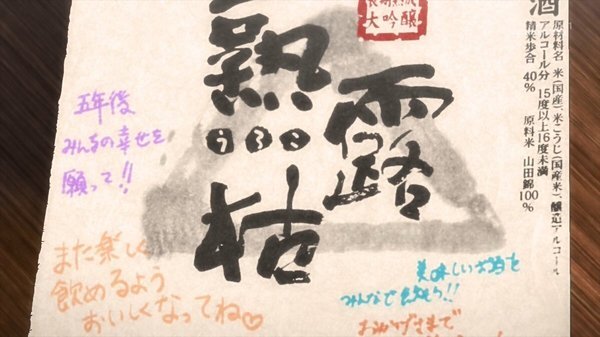 酒
原材料名 米(国産)、米こうじ(国産米)、醸造アルコール
アルコール分 15度以上16度未満
精米歩合 40% 原料米 山田錦100%
大吟醸
露
熟
枯
五年後
みんなの幸せを
願って!!
また楽しく
飲めるよう
おいしくなってね♡
美味しいお酒を
みんなで飲もう!!
おかげさまで